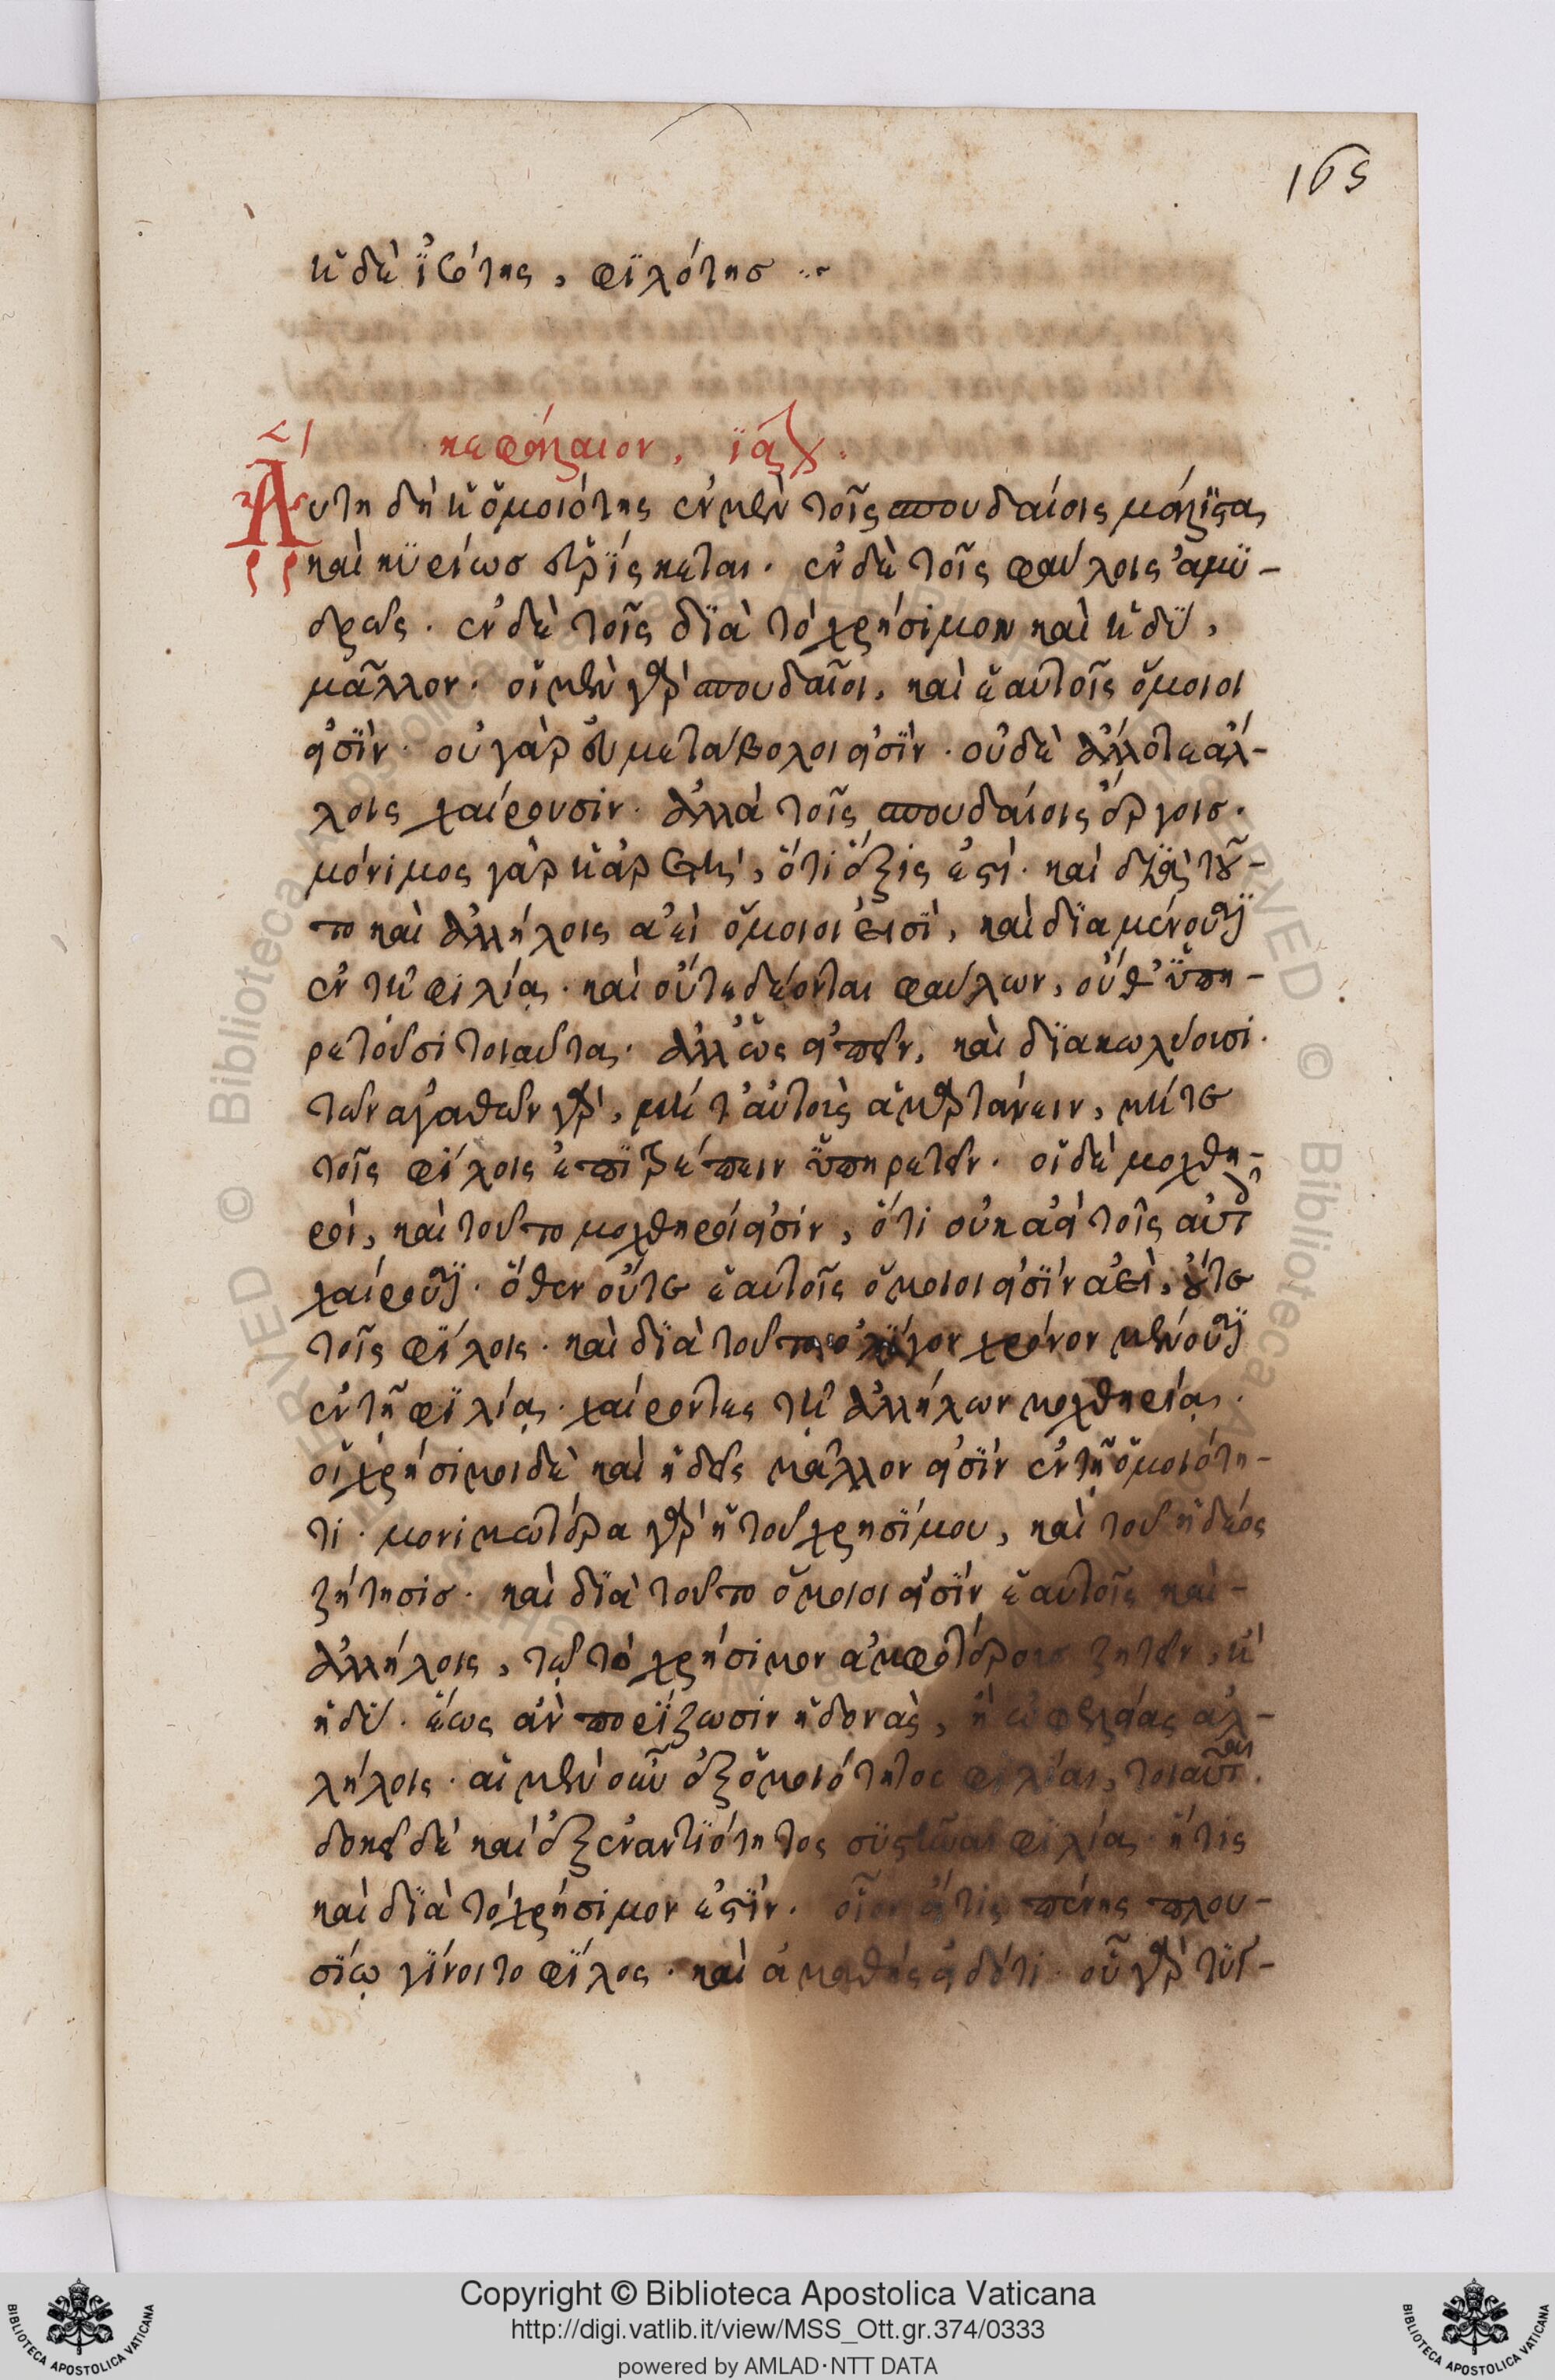 165
ἡ δὲ ἰσότης, φιλότησ
κεφάλαιον, ια
Αυτη δὴ ἡ ὁμοιότης ἐν μὲν τοῖς σπουδαίοις μάλιστα,
καὶ κυρίωσ εὑρίσκεται. ἐν δὲ τοῖς φαύλοις ἀμυ-
δρῶς. ἐν δὲ τοῖς διὰ τὸ χρήσιμον καὶ ἡδὺ,
μᾶλλον. οἱ μὲν γὰρ σπουδαῖοι, καὶ ἑαυτοῖς ὅμοιοι
εἰσὶν. οὐ γὰρ εὐμετάβολοι εἰσὶν. οὐδὲ ἄλλοτε ἄλ-
λοις χαίρουσιν. ἀλλὰ τοῖς σπουδαίοις ἔργοισ.
μόνιμος γὰρ ἡ ἀρετὴ, ὅτι ἕξις ἐστί. καὶ διὰ τοῦ-
το καὶ ἀλλήλοις ἀεὶ ὅμοιοι εἰσὶ, καὶ διαμένουσιν
ἐν τῇ φιλίᾳ. καὶ οὔτε δέονται φαύλων, οὔθ' ὑπη-
ρετοῦσι τοιαῦτα. ἀλλ' ὡς εἰπεῖν, καὶ διακωλύουσι.
τῶν ἀγαθῶν γὰρ, μήτ' αὐτοὺς ἁμαρτάνειν, μήτε
τοῖς φίλοις ἐπιτρέπειν ὑπηρετεῖν. οἱ δὲ μοχθη-
ροὶ, καὶ τοῦτο μοχθηροί εἰσιν, ὅτι οὐκ ἀεὶ τοῖς αὐτοῖς
χαίρουσιν. ὅθεν οὔτε ἑαυτοῖς ὅμοιοι εἰσὶν ἀεὶ, οὔτε
τοῖς φίλοις. καὶ διὰ τοῦτο ὀλίγον χρόνον μένουσιν
ἐν τῇ φιλίᾳ. χαίροντες τῇ ἀλλήλων μοχθηρίᾳ.
οἱ χρήσιμοι δὲ καὶ ἡδεῖς μᾶλλον εἰσὶν ἐν τῇ ὁμοιότη-
τι. μονιμωτέρα γὰρ ἡ τοῦ χρησίμου, καὶ τοῦ ἡδέος
ζήτησισ. καὶ διὰ τοῦτο ὅμοιοι εἰσὶν ἑαυτοῖς καὶ-
ἀλλήλοις, τῷ τὸ χρήσιμον ἀμφοτέροισ ζητεῖν, ἢ
ἡδύ. ἕως ἂν πορίζωσιν ἡδονὰς, ἢ ὠφελείας ἀλ-
λήλοις. αἱ μὲν οὖν ἐξ ὁμοιότητος φιλίαι, τοιαῦται.
δοκεῖ δὲ καὶ ἐξ ἐναντιότητος συστῆναι φιλία. ἥτις
καὶ διὰ τὸ χρήσιμον ἐστίν. οἷον εἴ τις πένης πλου-
σίῳ γένοιτο φίλος. καὶ ἀμαθὴς εἰδότι. οὗ γὰρ τυγ-
Copyright © Biblioteca Apostolica Vaticana
http://digi.vatlib.it/view/MSS_Ott.gr.374/0333
powered by AMLAD·NTT DATA
BIBLIOTECA APOSTOLICA VATICANA
BIBLIOTECA APOSTOLICA VATICANA